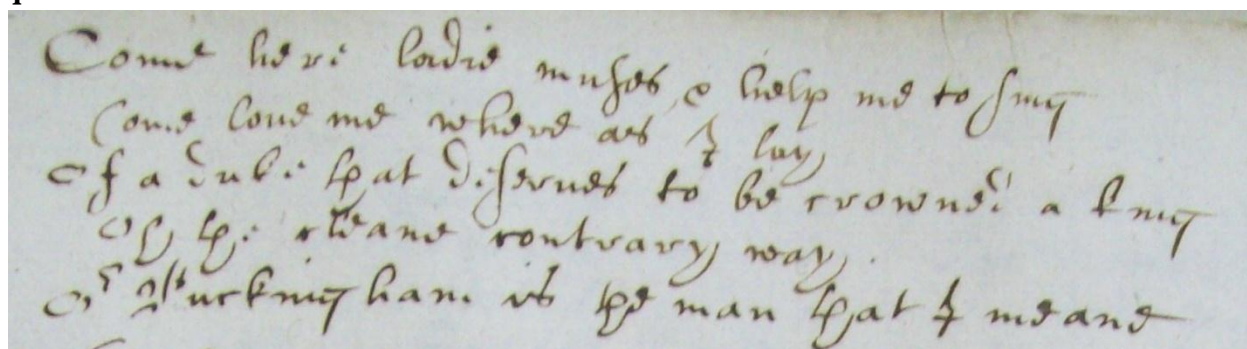 Come here ladie muses & help me to sing
Come love me where as I lay
Of a duke that deserves to be crowned a king
Oh the cleane contrary way.
Or Buckingham is the man that I meane